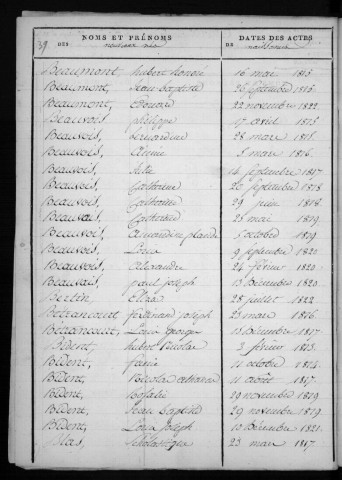 39.
NOMS ET PRÉNOMS
DES nouveaux nés
DATES DES ACTES
DE naissance
Beaumont, hubert honoré 16 mai 1813.
Beaumont, Jean baptiste 26 septembre 1815.
Beaumont, 22 novembre 1822.
Beauvois philippe 17 avril 1813.
Beauvois, 28 mars 1815.
Beauvois, 5 mars 1816.
Beauvois, 14 septembre 1817.
Beauvois, Catherine 20 septembre 1818.
Beauvois, Catherine 29 juin 1818.
Beauvois, Catherine 25 mai 1819.
Beauvois, 5 octobre 1819.
Beauvois, Louis 9 septembre 1820.
Beauvois, alexandre 24 février 1820.
Beauvais, paul joseph 13 décembre 1820.
Berlin, Elisa 28 juillet 1822.
Betrancourt ferdinand joseph 23 mars 1816.
Betrancourt, Louis Georges 13 décembre 1817.
Bident, hubert nicolas 3 février 1813.
Bident, 11 octobre 1814.
Bident, Nicolas 11 août 1817.
Bident, 29 novembre 1819.
Bident, Jean baptiste 29 novembre 1819.
Bident, Louis Joseph 10 décembre 1821.
Blas, 23 mars 1817